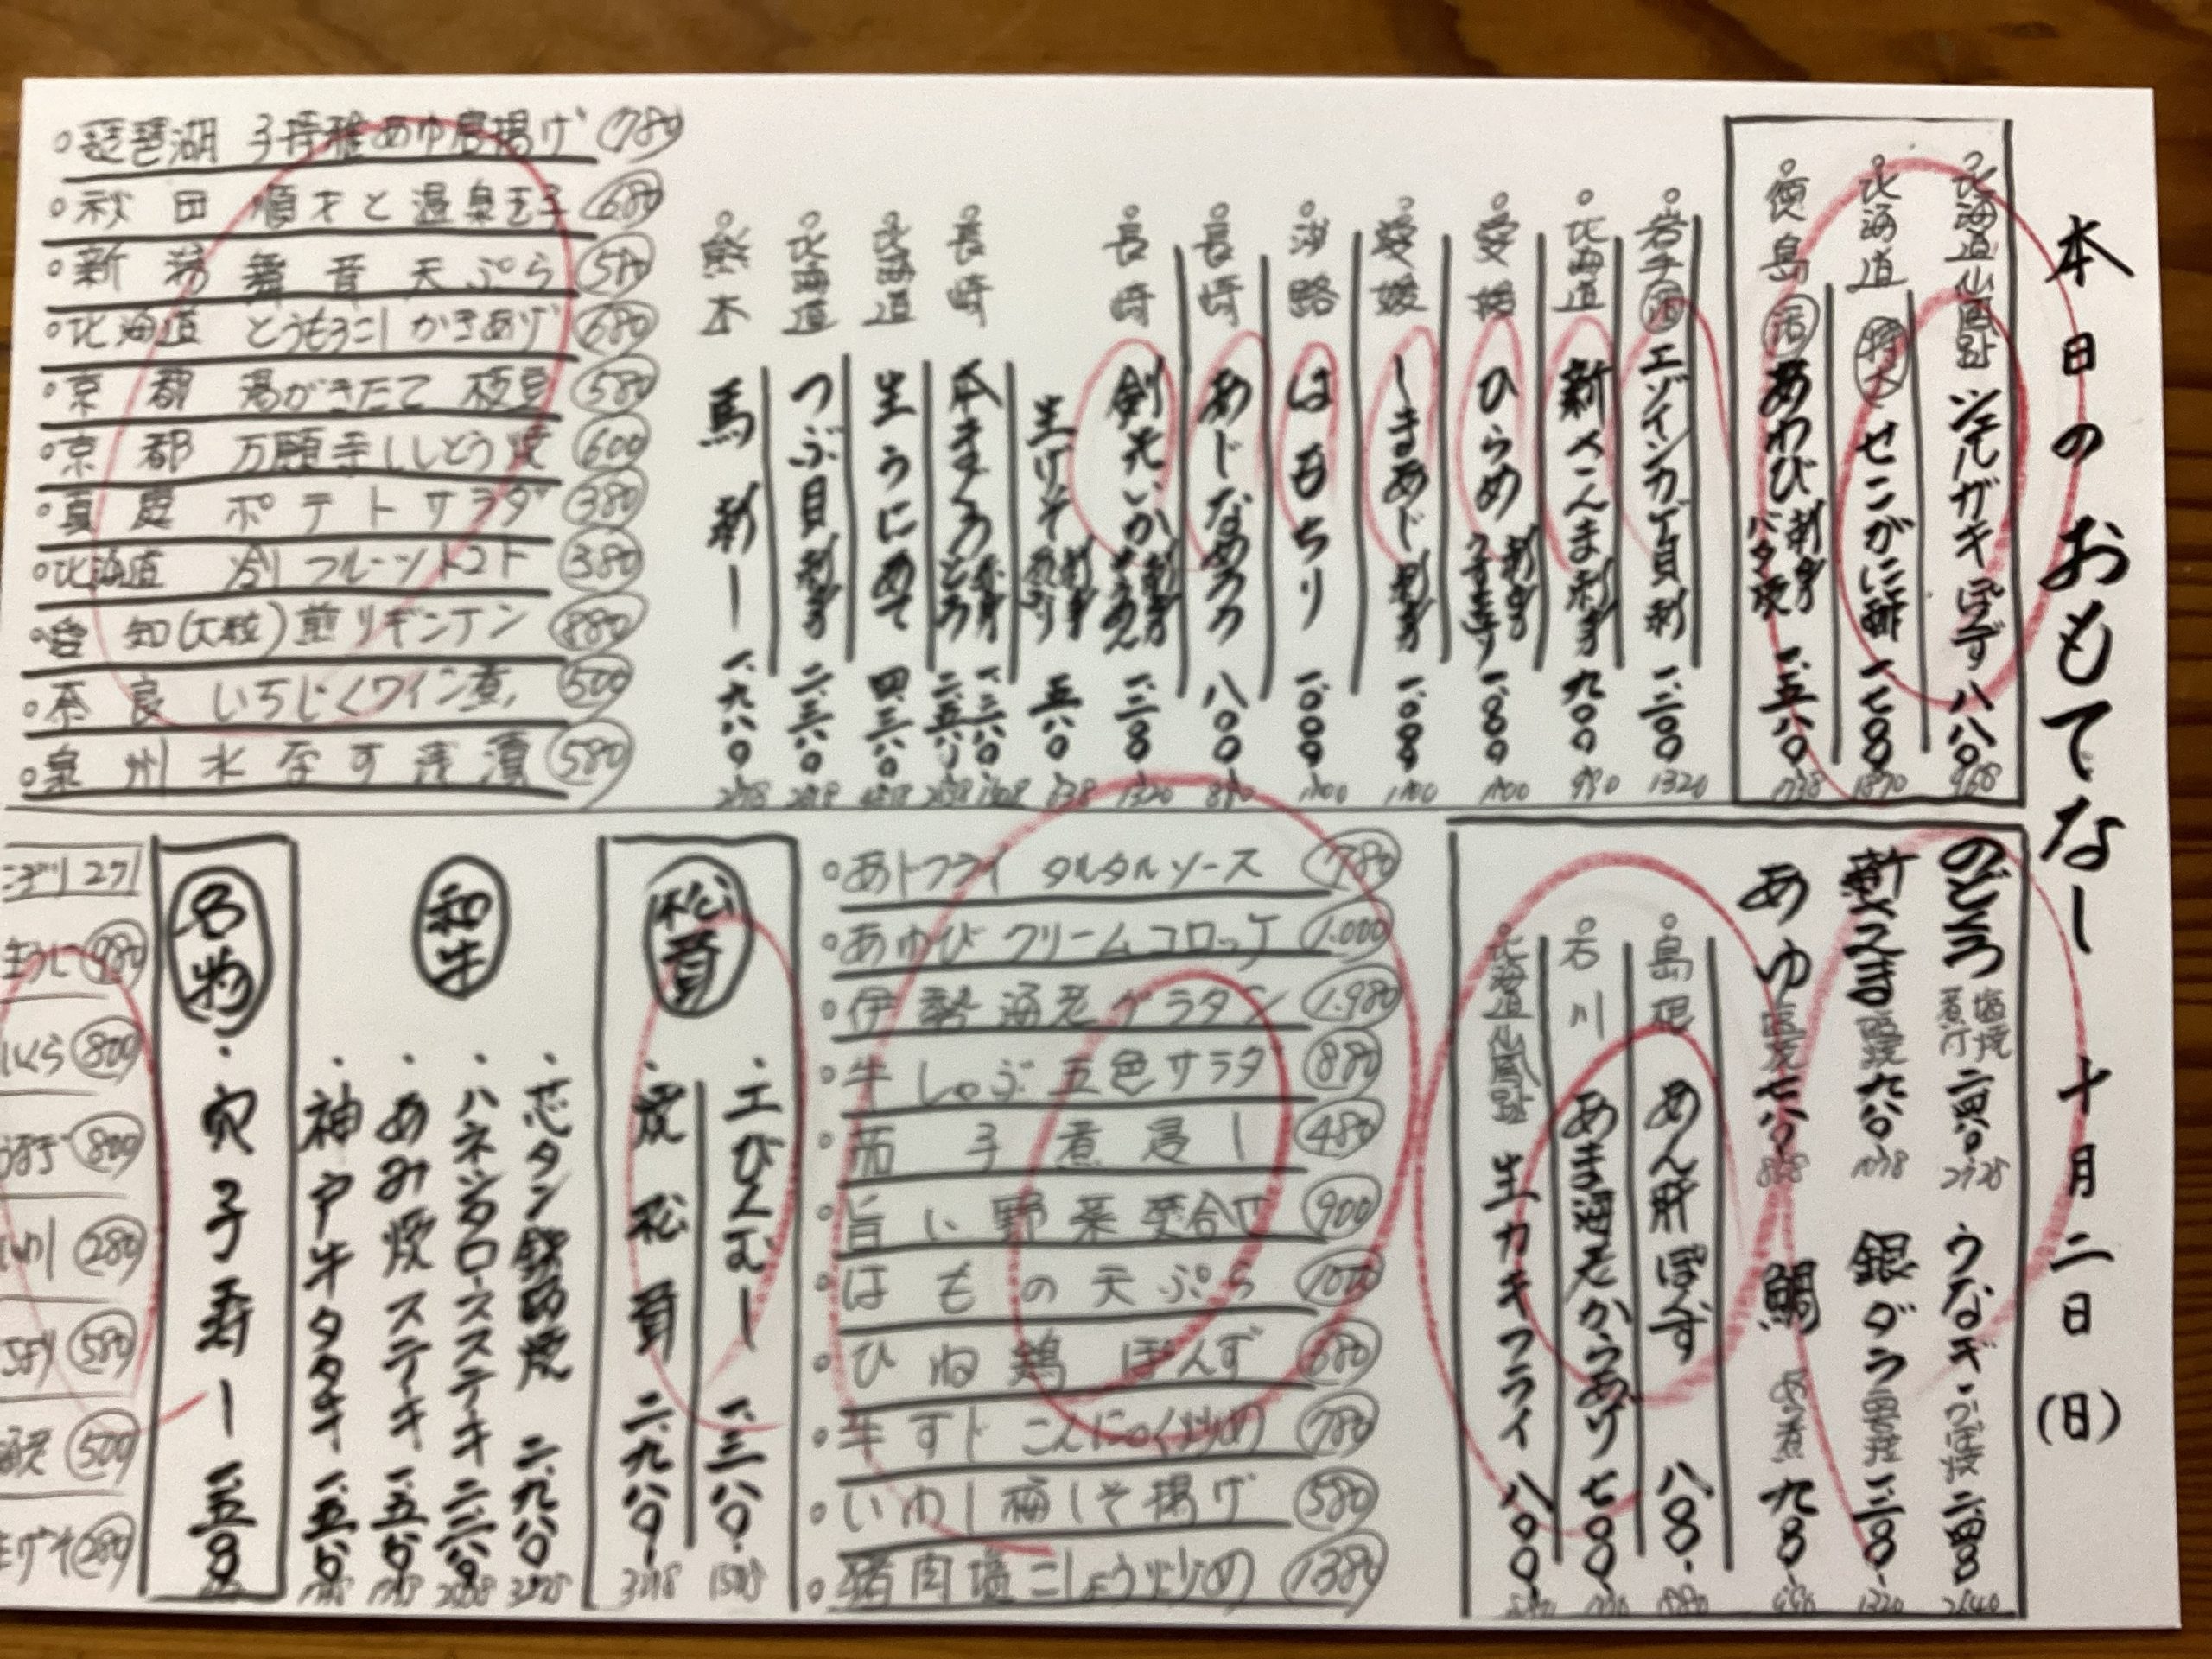 本日のおもてなし 十月二日(日)
北海道仙鳳趾 シェルガキぽんず 八八〇 968
北海道 特大 せこがに酢 一、七〇〇 1870
徳島 活 あわび 刺身 バタ焼 一、五八〇 1738
岩手 活 エゾイシカゲ貝刺 一、二〇〇 1320
北海道 新さんま刺身 九〇〇 990
愛媛 ひらめ 刺身 うす造り 一、〇〇〇 1100
愛媛 しまあじ刺身 一、〇〇〇 1100
淡路 はもちり 一、〇〇〇 1100
長崎 あじなめろう 八〇〇 880
長崎 剣先いか 刺身 そうめん 一、二〇〇 1320
生げそ 刺身 五八〇 638
長崎 本まぐろ 赤身 とろ 一、三八〇 二、五八〇
北海道 生うにあて 四、三八〇
北海道 つぶ貝刺身 二、三八〇
熊本 馬刺し 一、九八〇
琵琶湖 子持稚あゆ唐揚げ 780
秋田 順才と温泉玉子 680
新潟 舞茸天ぷら 580
北海道 とうもろこしかきあげ 680
京都 湯がきたて枝豆 580
京都 万願寺ししとう焼 600
真庭 ポテトサラダ 380
北海道 冷しフルーツトマト 380
愛知(大粒)煎りギンナン 880
奈良 いちじくワイン煮 500
泉州水なす浅漬 580
のどぐろ 塩焼 煮付 二、四八〇 2728
新さんま 塩焼 九八〇 1078
あゆ 塩焼 七八〇 858
うなぎ かば焼 二、四〇〇 2640
銀ダラ 西京焼 一、二〇〇 1320
鯛 あら煮 九〇〇 990
島根 あん肝ぽんず 八〇〇 880
石川 あま海老からあげ 七〇〇 770
北海道仙鳳趾 生カキフライ 八〇〇 880
あじフライ タルタルソース 780
あわびクリームコロッケ 1.000
伊勢海老グラタン 1.980
牛しゃぶ五色サラダ 880
茄子煮浸し 480
旨い野菜焚合せ 900
はもの天ぷら 1000
ひね鶏ぽんず 680
牛すじこんにゃく炒め 780
いわし梅しそ揚げ 580
猪肉塩こしょう炒め 1380
松茸
エびんむし 一、三八〇 1518
焼松茸 二、九八〇 3278
和牛
芯タン鉄砲焼 二、九八〇 3278
ハネシタロースステーキ
あみ焼ステーキ 一、五八〇 1738
神戸牛タタキ 一、五八〇 1738
名物
穴子寿し 一、五〇〇
980
いくら 800
800
280
580
500
生げそ 280